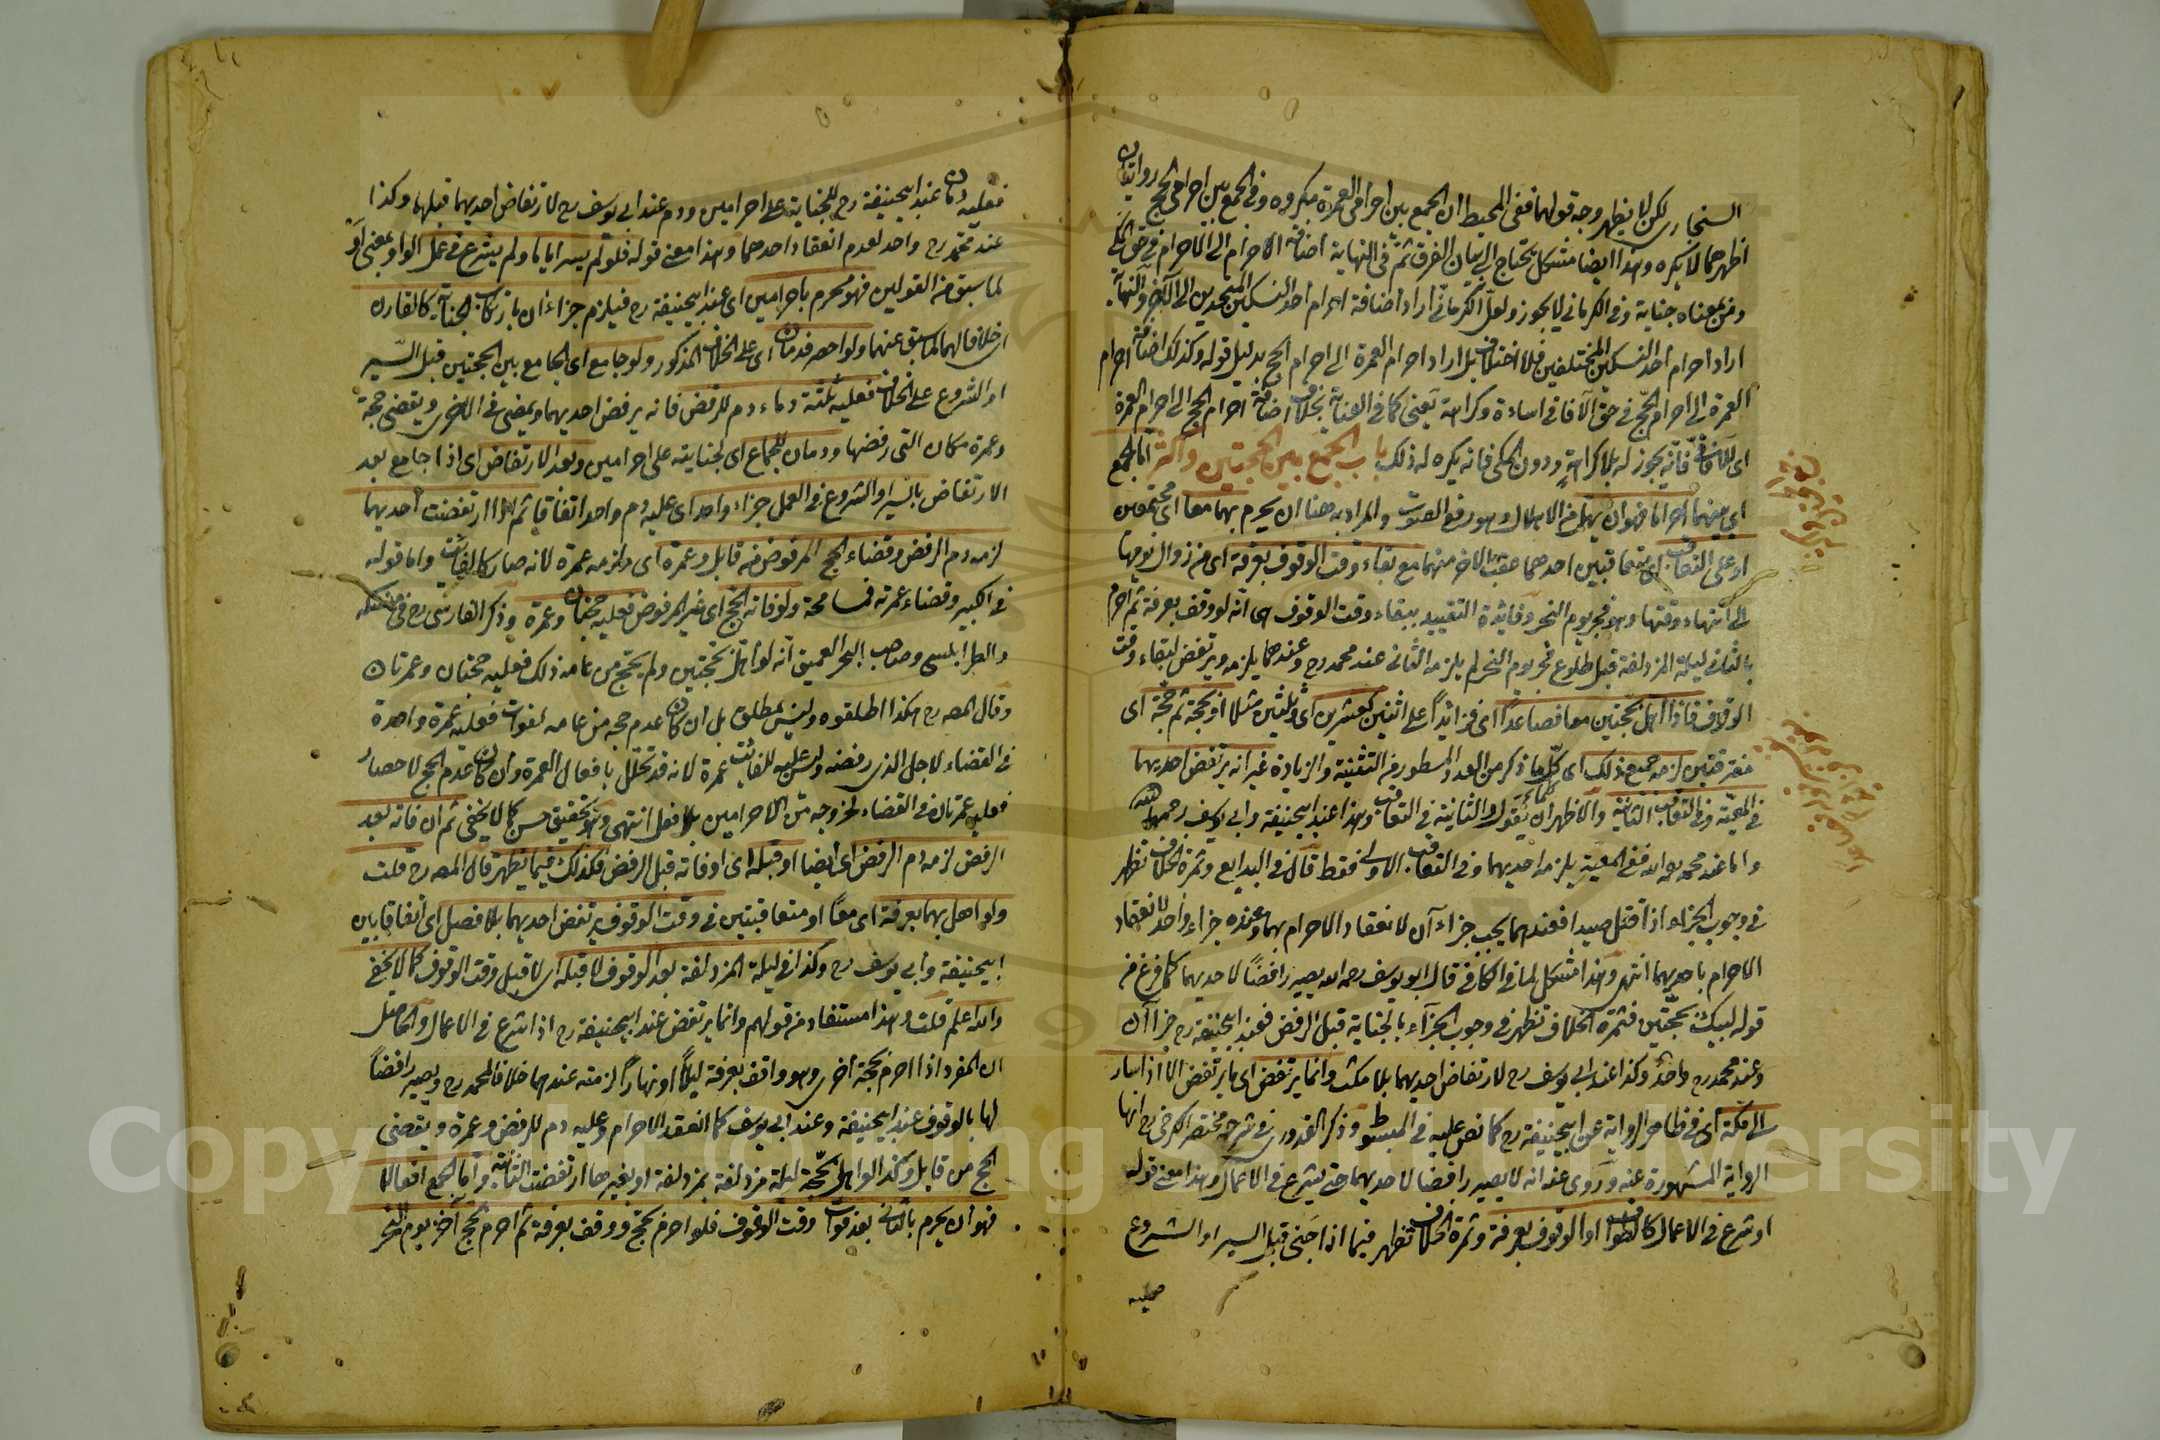 السنجاري لكن لا يظهر وجه قولهما ففي المحيط ان الجمع بين احرامي العمرة مكروه وفي الجمع بين احرامي الحج روايتان
اظهرهما لا يكره وهذا ايضا مشكل يحتاج الى بيان الفرق ثم في النهاية اضافة الاحرام الى الاحرام في حق المكي
ومن بمعناه جناية وفي الكرماني لا يجوز ولعل الكرماني اراد اضافة احرام احد النسكين المتحدين الى الآخر والنهاية
اراد احرام احد النسكين المختلفين فلا اختلاف بل اراد احرام العمرة الى احرام الحج بدليل قوله وكذلك اضافة احرام
العمرة الى احرام الحج في حق الآفاقي اساءة وكراهة يعني كما في العناية بخلاف اضافة احرام الحج الى احرام العمرة
اي للآفاقي فانه يجوز له بلا كراهة ودون المكي فانه يكره له ذلك باب الجمع بين الحجتين واكثر اما الجمع
اي بينهما احراما فهو ان يهل من الاهلال وهو رفع الصوت والمراد به هنا ان يحرم بهما معا اي مجتمعين
او على التعاقب اي متعاقبين احدهما عقيب الاخر منهما مع بقاء وقت الوقوف بعرفة اي من زوال يومها
الى انتهاء وقتها وهو فجر يوم النحر وفائدة التقييد ببقاء وقت الوقوف هي انه لو وقف بعرفة ثم احرم
بالثاني ليلة المزدلفة قبل طلوع فجر يوم النحر لم يلزمه الثاني عند محمد رح وعندهما يلزمه ويرتفض لبقاء وقت
الوقوف فاذا اهل بحجتين معا فصاعدا اي فزائدا على اثنين كعشرين اي وثلثين مثلا او بحجة ثم حجة اي
مفترقتين لزمه جميع ذلك اي كل ما ذكر من العدد المسطور من التثنية والزيادة غير انه يرتفض احديهما
في المعية وفي التعاقب الثانية والاظهر ان يقول والثانية في التعاقب وهذا عند ابيحنيفة وابي يوسف رحمهما الله
واما عند محمد رحمه الله ففي المعية يلزمه احديهما وفي التعاقب الاولى فقط قال في البدايع وثمرة الخلاف تظهر
في وجوب الجزاء اذا قتل صيدا فعندهما يجب جزاءآن لانعقاد الاحرام بهما وعنده جزاء واحد لانعقاد
الاحرام باحديهما انتهى وهذا مشكل لما في الكافي قال ابو يوسف رحمه الله يصير رافضا لاحديهما كما فرغ من
قوله لبيك بحجتين فثمرة الخلاف تظهر في وجوب الجزآء بالجناية قبل الرفض فعند ابيحنيفة رح جزاآن
وعند محمد رح واحد وكذا عند ابي يوسف رح لارتفاض احديهما بلا مكث وانما يرتفض اي ما يرتفض الا اذا سار
الى مكة اي في ظاهر الرواية عن ابيحنيفة رح كما نص عليه في المبسوط وذكر القدوري في شرحه مختصر الكرخي رح انها
الرواية المشهورة عنه وروى عنه انه لا يصير رافضا لاحديهما حتى يشرع في الاعمال وهذا معنى قوله
او شرع في الاعمال كالطواف او الوقوف بعرفة وثمرة الخلاف تظهر فيما اذا جنى قبل السير او الشروع
فعليه
فعليه دمان عند ابيحنيفة رح للجناية على احرامين ودم عند ابي يوسف رح لارتفاض احديهما قبلها وكذا
عند محمد رح واحد لعدم انعقاد احدهما وهذا معنى قوله فلو لم يسر اياما ولم يشرع في عمل الواو بمعنى او
لما سبق من القولين فهو محرم باحرامين اي عند ابيحنيفة رح فيلزم جزاءان بارتكاب الجناية كالقارن
اي خلافا لهما كما سبق عنهما ولو احصر فدمان اي على الخلاف المذكور ولو جامع اي الجامع بين الحجتين قبل السير
او الشروع على الخلاف فعليه ثلثة دماء دم للرفض فانه يرفض احديهما ويمضي في الاخرى ويقضي حجة
وعمرة مكان التي رفضها ودمان للجماع اي لجنايته على احرامين وبعد الارتفاض اي اذا جامع بعد
الارتفاض بالسير او الشروع في العمل جزاء واحد اي عليه دم واحد اتفاقا ثم اذا ارتفضت احديهما
لزمه دم الرفض وقضاء الحج المرفوض من قابل وعمرة اي ولزمه عمرة لانه صار كالفايت واما قوله
في الكبير وقضاء عمرته فمسامحة ولو فاته الحج اي غير المرفوض فعليه حجتان وعمرة وذكر الفارسي رح في منسكه
والطرابلسي وصاحب البحر العميق انه لو اهل بحجتين ولم يحج من عامه ذلك فعليه حجتان وعمرتان
وقال المص رح هكذا اطلقوه وليس بمطلق بل ان كان عدم حجه من عامه لفوات فعليه عمرة واحدة
في القضاء لاجل الذي رفضه وليس عليه للفائت عمرة لانه قد تحلل بافعال العمرة وان كان عدم الحج لاحصار
فعليه عمرتان في القضاء لخروجه من الاحرامين بلا فعل انتهى وهو تحقيق حسن كما لا يخفى ثم ان فاته بعد
الرفض لزمه دم الرفض اي ايضا او قبله اي او فاته قبل الرفض فكذلك فيما يظهر قال المص رح قلت
ولو اهل بهما بعرفة اي معا او متعاقبتين في وقت الوقوف يرتفض احديهما بلا فصل اي اتفاقا بين
ابيحنيفة وابي يوسف رح وكذا في ليلة المزدلفة بعد الوقوف لا قبله اي لا قبل وقت الوقوف كما لا يخفى
والله اعلم قلت وهذا مستفاد من قولهم وانما يرتفض عند ابيحنيفة رح اذا شرع في الاعمال والحاصل
ان المفرد اذا احرم بحجة اخرى وهو واقف بعرفة ليلا او نهارا لزمته عندهما خلافا لمحمد رح ويصير رافضا
لها بالوقوف عند ابيحنيفة وعند ابي يوسف كما انعقد الاحرام وعليه دم للرفض وعمرة ويقضي
الحج من قابل وكذا لو اهل بحجة ليلة مزدلفة بمزدلفة او بغيرها ارتفضت الثانية واما الجمع افعالا
فهو ان يحرم بالثاني بعد فوات وقت الوقوف فلو احرم بحج ووقف بعرفة ثم احرم بحج آخر يوم النحر
Copyright © King Saud University